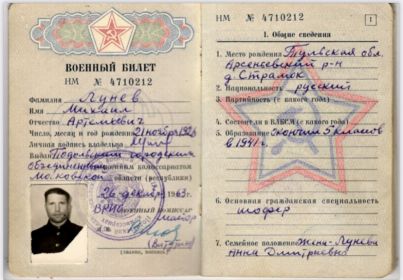 ВОЕННЫЙ БИЛЕТ
НМ № 4710212
Фамилия Лунев
Имя Михаил
Отчество Артемьевич
Число, месяц и год рождения 21 ноября 192
Личная подпись владельца
Выдан Подольским городским
объединенным военным комиссариатом
Московской области (республики)
26 декабря 1963 г.
Военный комиссар
майор
М. П.
НМ № 4710212
1
I. Общие сведения
1. Место рождения Тульская обл.
Арсеньевский р-н
д. Страмок
2. Национальность русский
3. Партийность (с какого года)
4. Состоял ли в ВЛКСМ (с какого года)
5. Образование окончил 5 классов
в 1941 г.
6. Основная гражданская специальность
шофер
7. Семейное положение жена - Лунева
Анна Дмитриевна